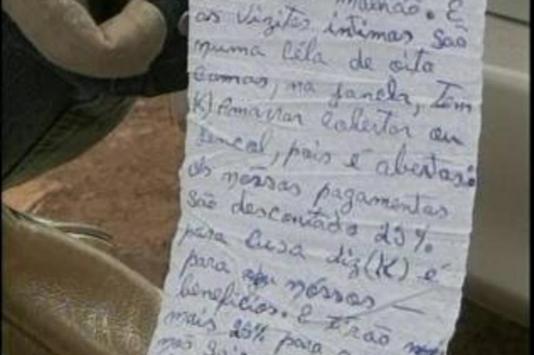 as vizitas intimas são
numa céla de oito
camas, na janela, Tem
K) amarrar cobertor ou
lençol, pois é abertas:
os nossas pagamentos
são descontado 25%
para casa diz (K) é
para nossos —
beneficios. E tirão
mais 25% para